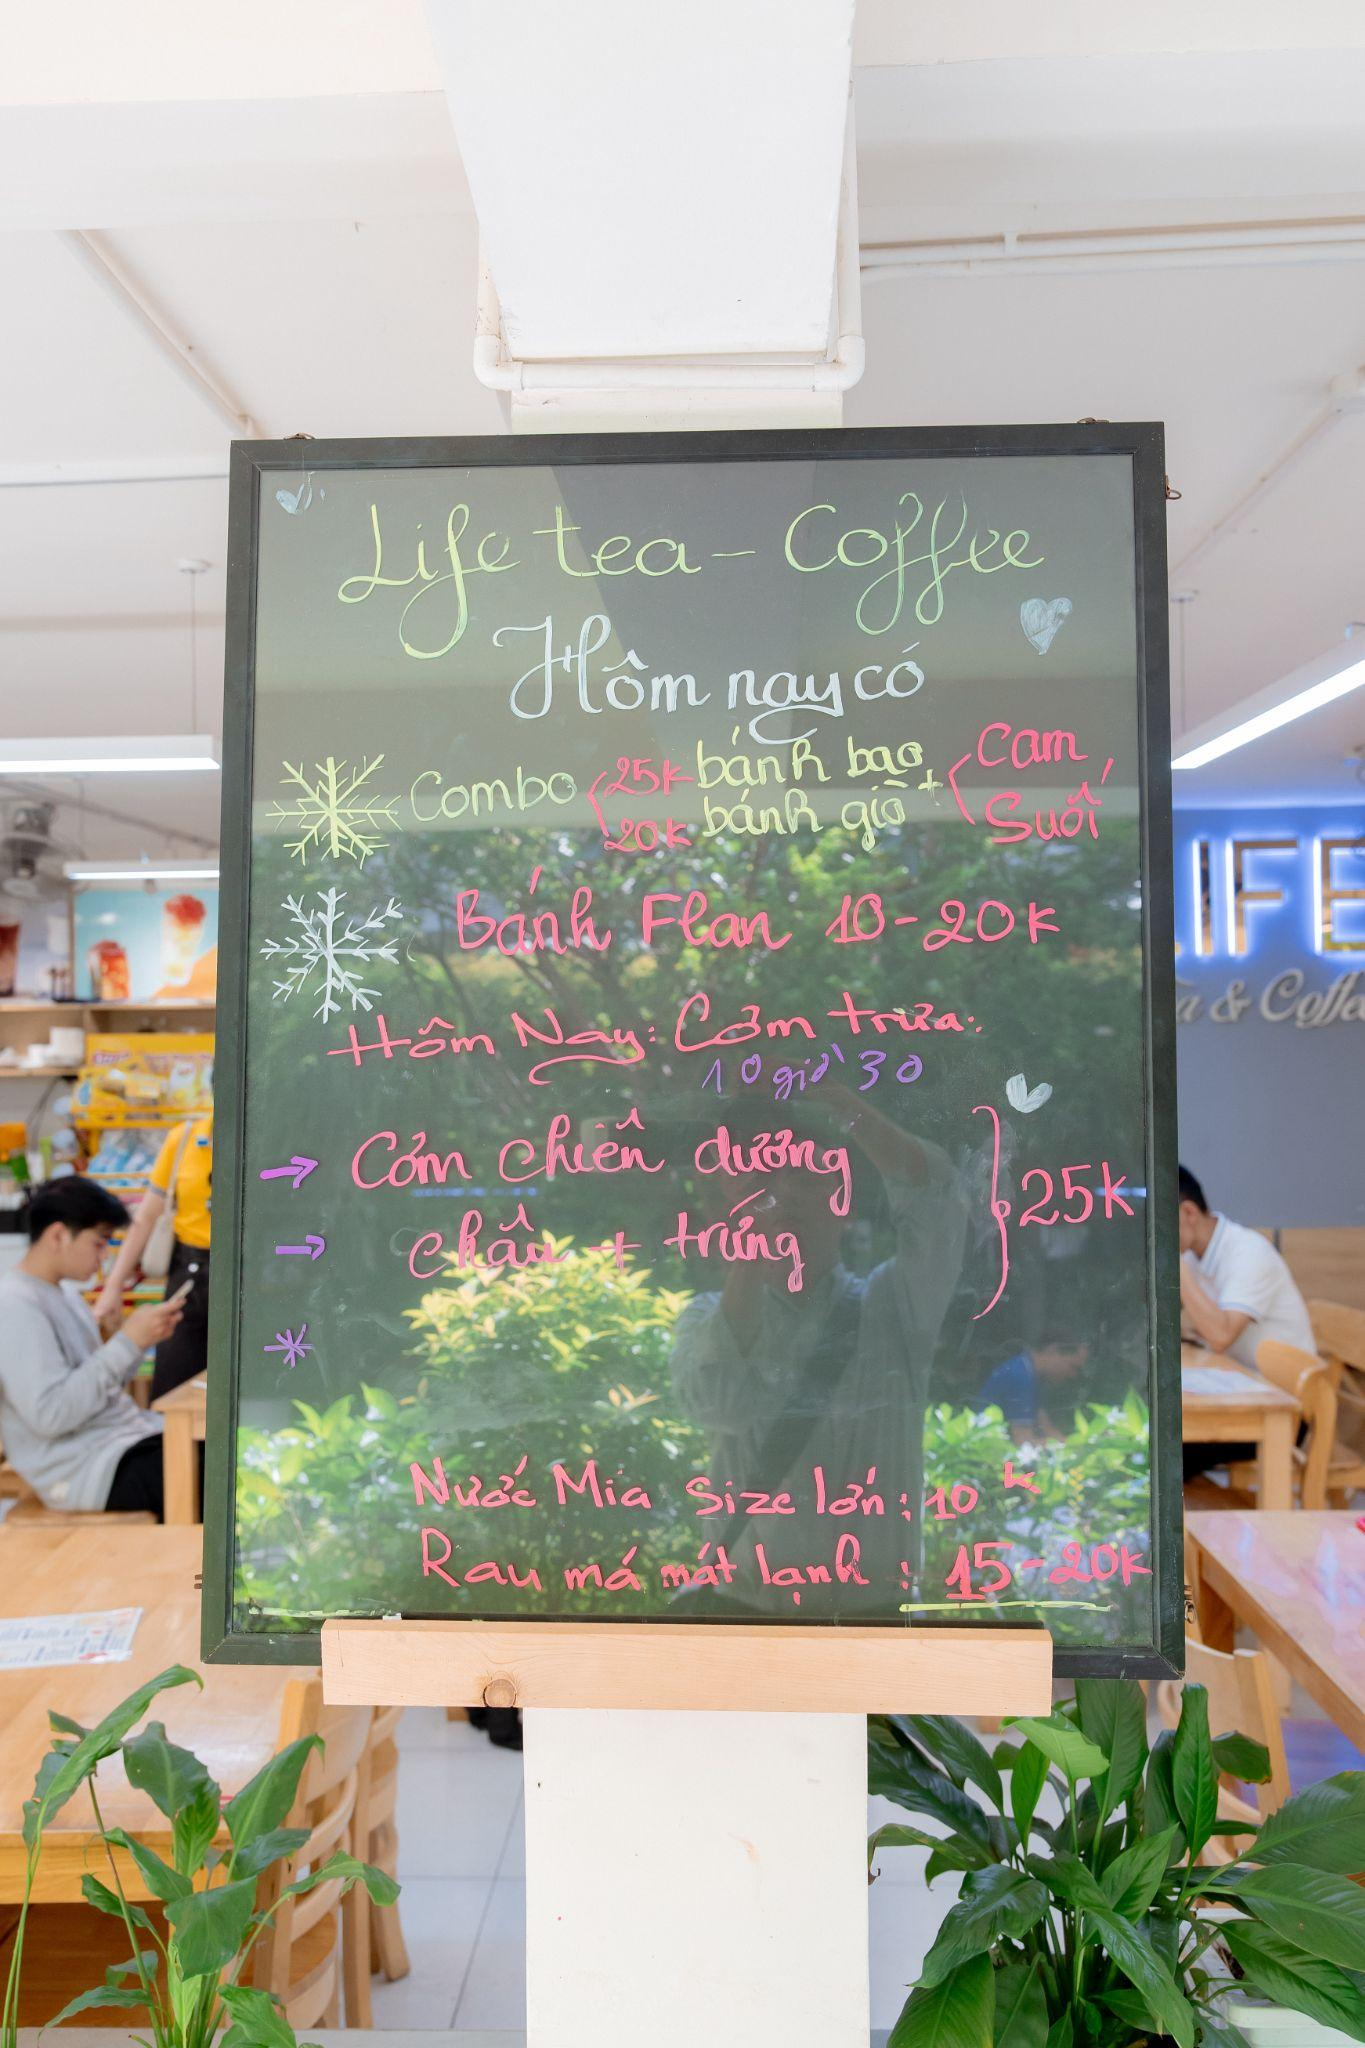 Life tea - Coffee
Hôm nay có
Combo 25K bánh bao + Cam
20K bánh giò Suối
Bánh Flan 10-20K
Hôm Nay: Cơm trưa:
10 giờ 30
→ Cơm chiên dương
→ châu + trứng
25k
*
Nước Mía Size lớn: 10 k
Rau má mát lạnh: 15-20K
LIFE
& Coffee